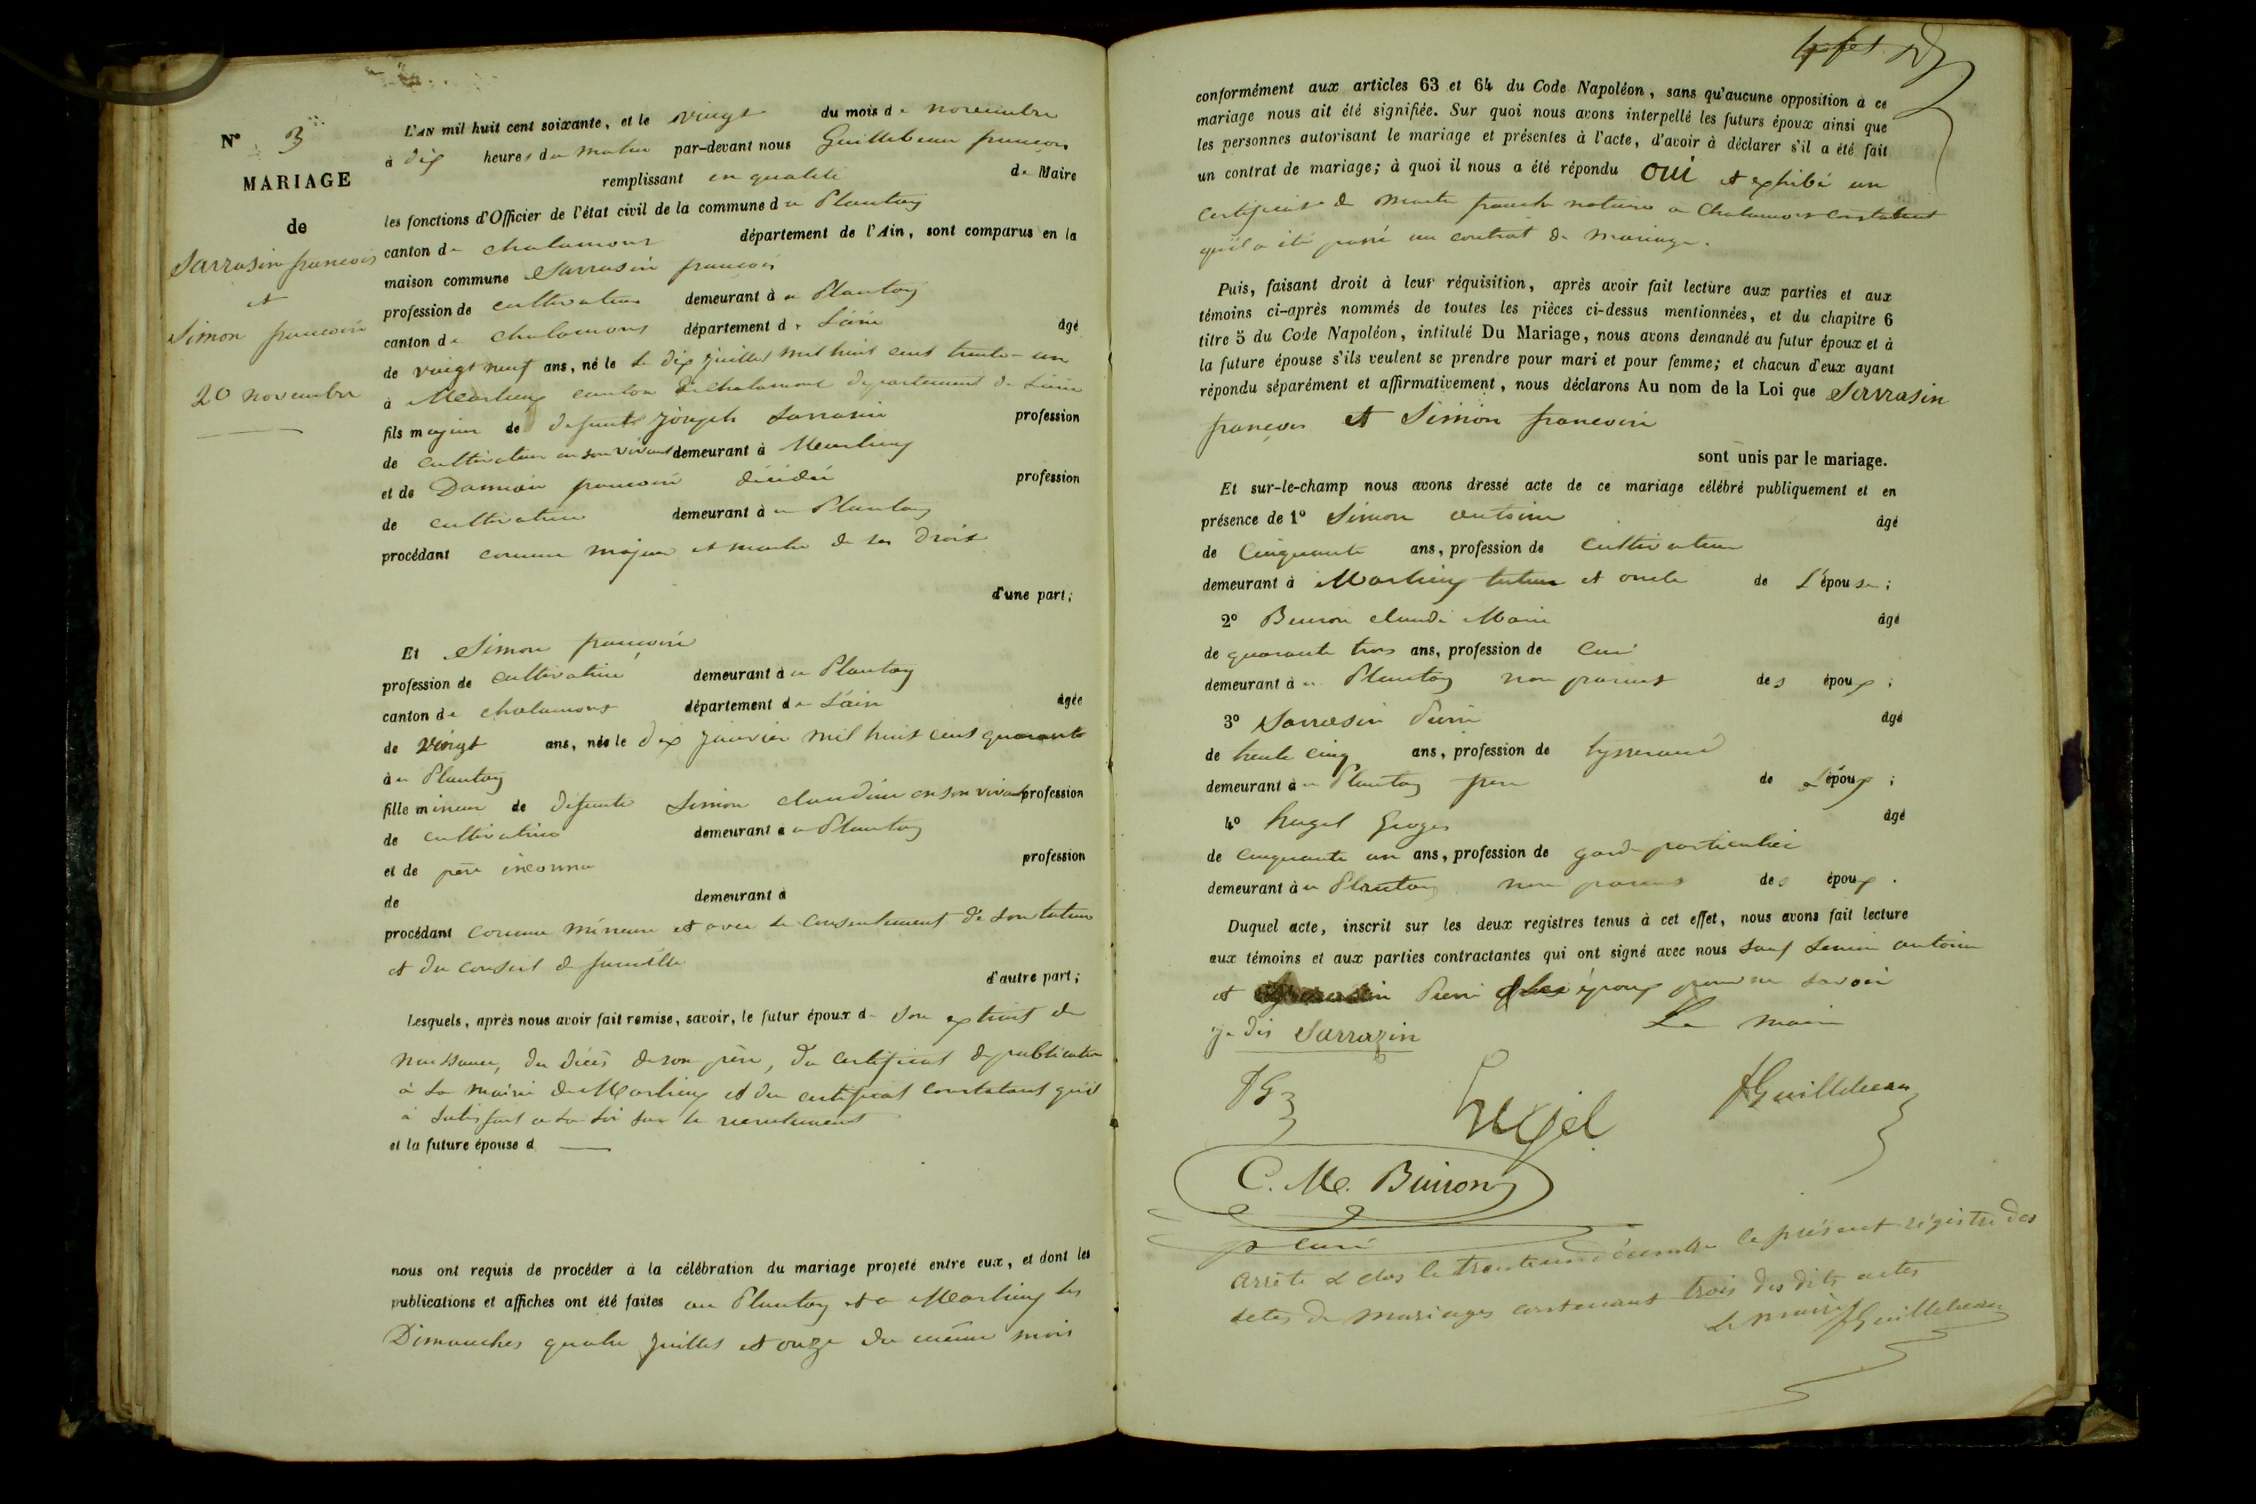 N° 3
MARIAGE
de
Sarrasin francois
et
Simon francoise
20 novembre
L'AN mil huit cent soixante, et le vingt du mois de novembre
à dix heures du matin par-devant nous Guillebeau francois
remplissant en qualité de Maire
les fonctions d'Officier de l'état civil de la commune du Plantay
canton de chalamont département de l'Ain, sont comparus en la
maison commune Sarrasin francois
profession de cultivateur demeurant à u Plantay
canton de chalamont département de L'ain âgé
de vingt neuf ans, né le le dix juillet mil huit cent trente-un
à Marlieux canton de chalamont departement de L'ain
fils majeur de defunt Joseph Sarrasin profession
de cultivateur en son vivant demeurant à Marlieux
et de francoise décédée profession
de cultivatrice demeurant à u Plantay
procédant comme majeur et maitre de ses Droits
d'une part;
Et Simon francoise
profession de cultivatrice demeurant à u Plantay
canton de chalamont département de L'ain âgée
de vingt ans, née le dix janvier mil huit cent quarante
à u Plantay
fille mineure de défunte Simon claudine en son vivant profession
de cultivatrice demeurant à u Plantay
et de père inconnu profession
de demeurant à
procédant comme mineure et avec le consentement de son tuteur
et du conseil de famille
d'autre part;
Lesquels, après nous avoir fait remise, savoir, le futur époux de son extrait de
naissance, du décès de son père, du certificat de publication
à la mairie de Marlieux et du certificat constatant qu'il
a satisfait a la loi sur le recrutement
et la future épouse d
nous ont requis de procéder à la célébration du mariage projeté entre eux, et dont les
publications et affiches ont été faites au Plantay et a Marlieux les
Dimanches quatre juillet et onze du même mois
conformément aux articles 63 et 64 du Code Napoléon, sans qu'aucune opposition à ce
mariage nous ait été signifiée. Sur quoi nous avons interpellé les futurs époux ainsi que
les personnes autorisant le mariage et présentes à l'acte, d'avoir à déclarer s'il a été fait
un contrat de mariage; à quoi il nous a été répondu oui et exhibé un
certificat de notaire a Chalamont constatant
qu'il a été passé un contrat de mariage.
Puis, faisant droit à leur réquisition, après avoir fait lecture aux parties et aux
témoins ci-après nommés de toutes les pièces ci-dessus mentionnées, et du chapitre 6
titre 5 du Code Napoléon, intitulé Du Mariage, nous avons demandé au futur époux et à
la future épouse s'ils veulent se prendre pour mari et pour femme; et chacun d'eux ayant
répondu séparément et affirmativement, nous déclarons Au nom de la Loi que Sarrasin
françois et Simon francoise
sont unis par le mariage.
Et sur-le-champ nous avons dressé acte de ce mariage célébré publiquement et en
présence de 1° Simon antoine âgé
de Cinquante ans, profession de cultivateur
demeurant à Marlieux tuteur et oncle de L'épouse;
2° Buiron claude Marie âgé
de quarante trois ans, profession de Curé
demeurant à u Plantay non parent des époux;
3° Sarrasin Pierre âgé
de trente cinq ans, profession de tysserand
demeurant à u Plantay frere de L'époux;
4° hugel Georges âgé
de cinquante un ans, profession de garde particulier
demeurant à u Plantay non parent des époux.
Duquel acte, inscrit sur les deux registres tenus à cet effet, nous avons fait lecture
aux témoins et aux parties contractantes qui ont signé avec nous sauf Simon antoine
et Pierre époux pour ne savoir
je dis Sarrazin Le maire
hugel
Guillebeau
C. M. Buiron
curé
arrêté & clos le trente un décembre le présent régistre des
actes de mariages contenant trois des dits actes
Le maire Guillebeau